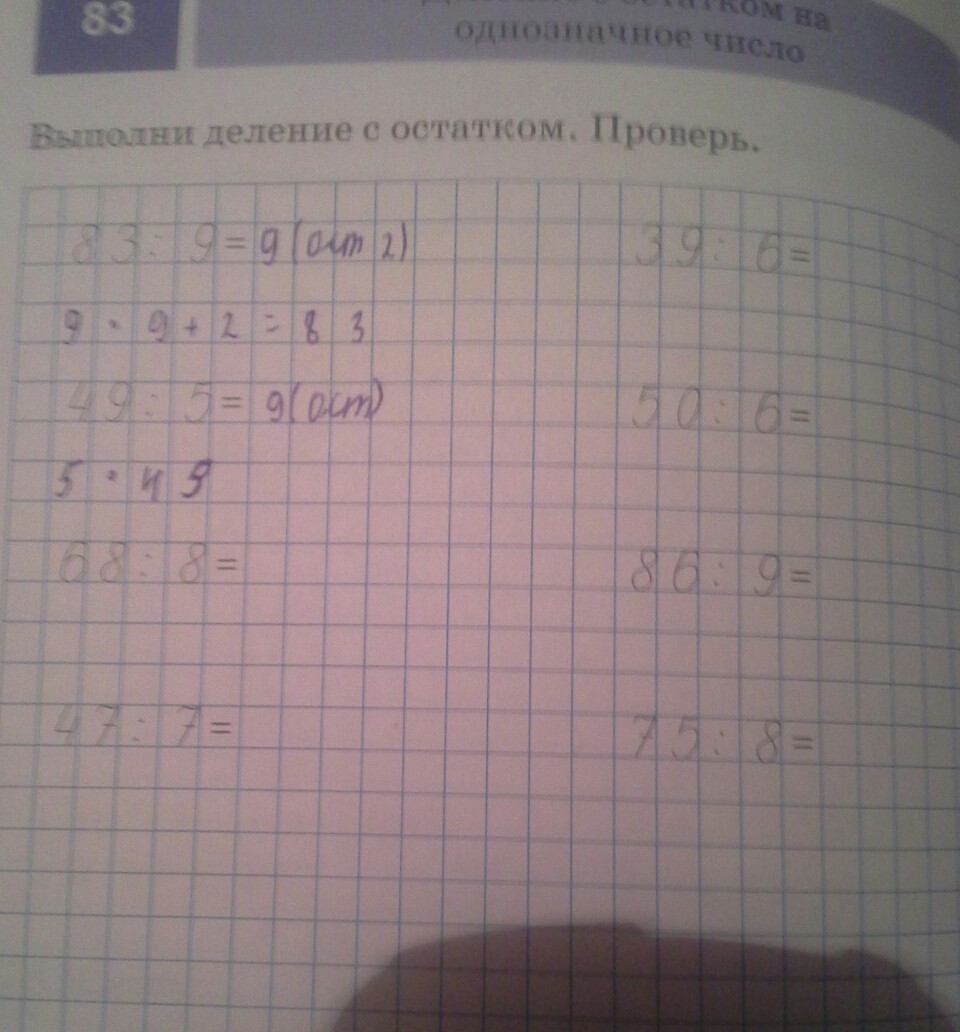 83
с остатком на
однозначное число
Выполни деление с остатком. Проверь.
83 : 9 = 9 (ост 2)
9 · 9 + 2 = 83
49 : 5 = 9 (ост)
5 · 49
68 : 8 =
47 : 7 =
39 : 6 =
50 : 6 =
86 : 9 =
75 : 8 =